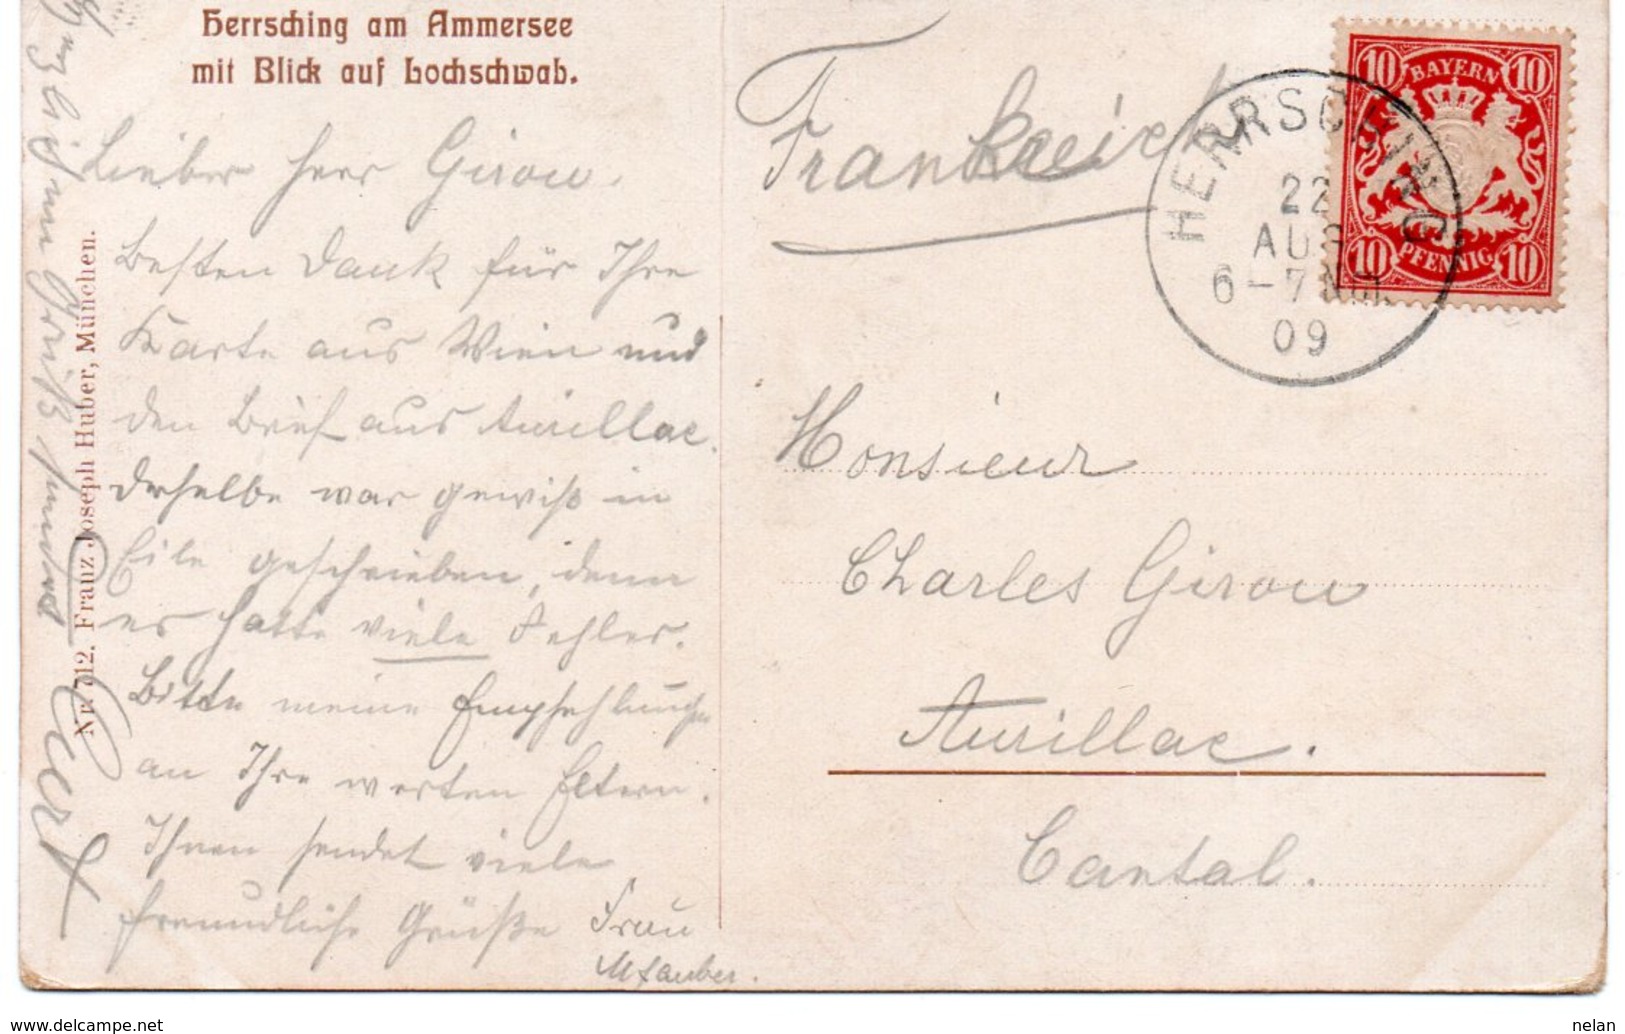 Herrsching am Ammersee
mit Blick auf Lochschwab.
Lieber Herr Girou.
Besten Dank für Ihre
Karte aus Wien und
den Brief aus Aurillac.
Derselbe war gewiß in
Eile geschrieben, denn
er hatte viele Fehler.
Bitte meine Empfehlungen
an Ihre werten Eltern.
Ihnen sendet viele
freundliche Grüße Frau
Nr. 712. Franz Joseph Huber, München.
Gruß
Frankreich
HERRSCHING
22
AUG
6-7 Nm.
09
10 BAYERN 10
10 PFENNIG 10
Monsieur
Charles Girou
Aurillac.
Cantal.
www.delcampe.net
nelan